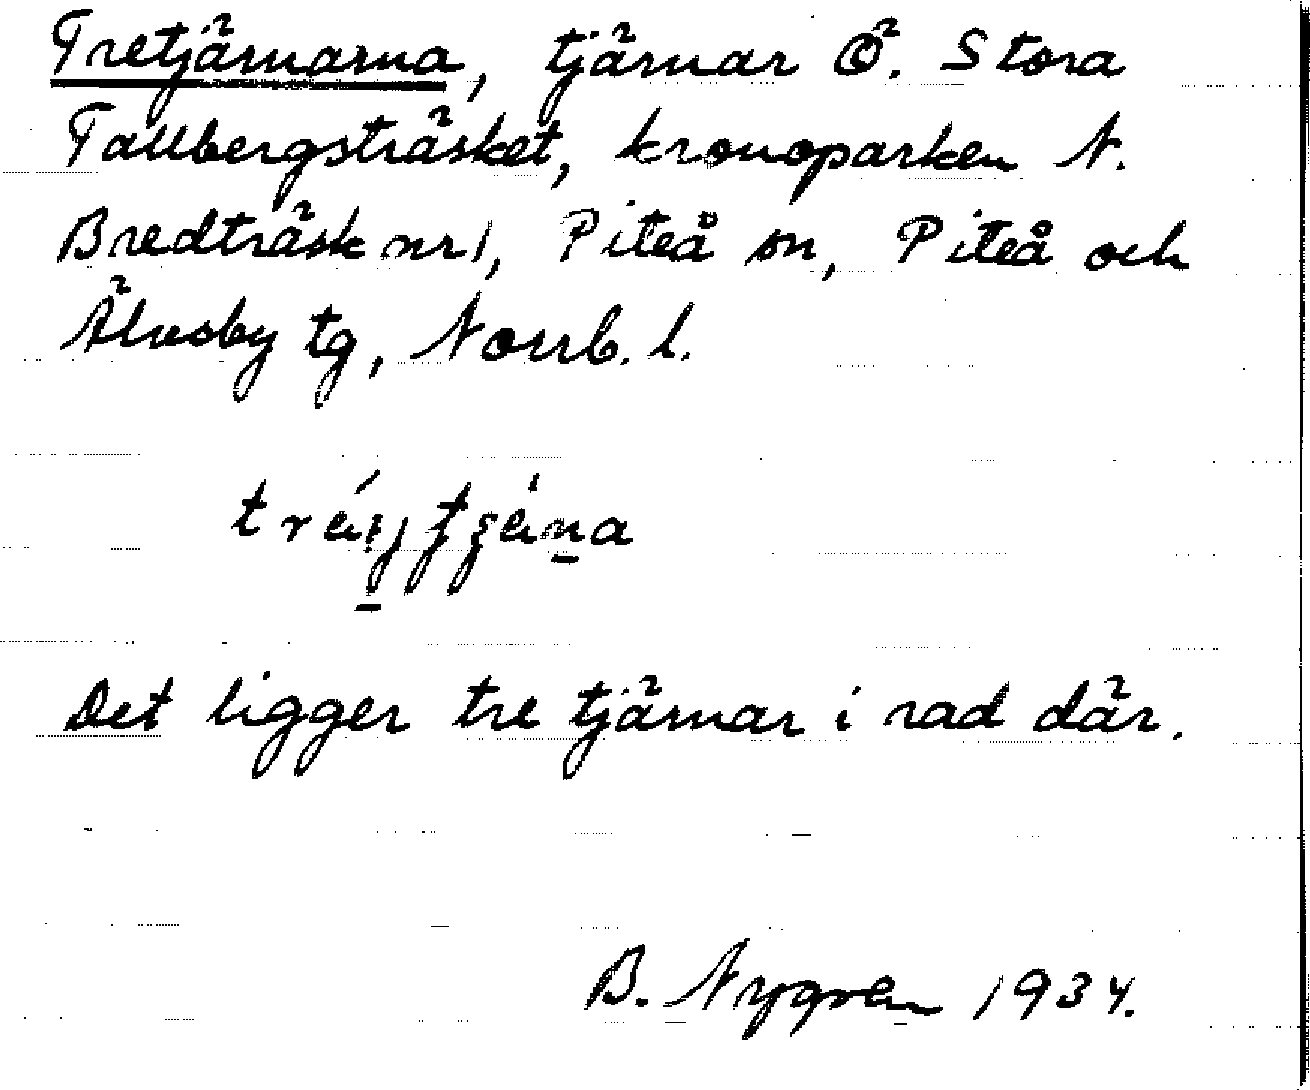 Tretjärnarna, tjärnar Ö. Stora
Tallbergsträsket, kronoparken N.
Bredträsk nr 1, Piteå sn, Piteå och
Älvsby tg, Norrb. l.
Det ligger tre tjärnar i rad där.
B. Nygren 1934.